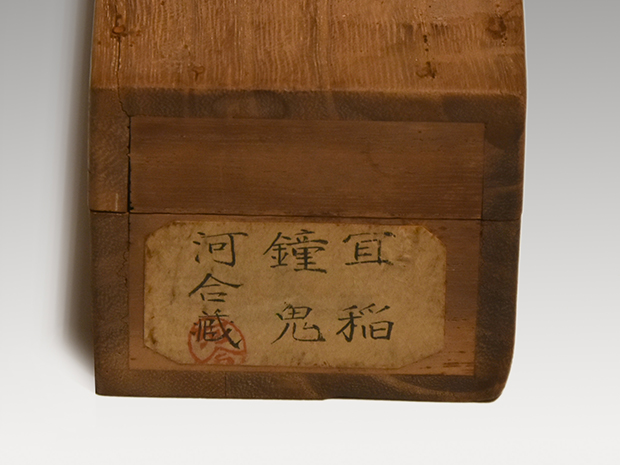 宜稲
鐘鬼
河合蔵